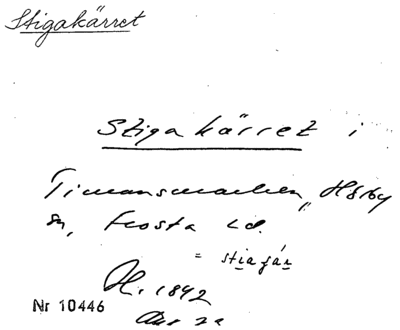 Stigakärret
Stigakärret i
Timansmarken, Hörby
sn, Frosta hd.
= stiajár
H. 1892
Nr 10446